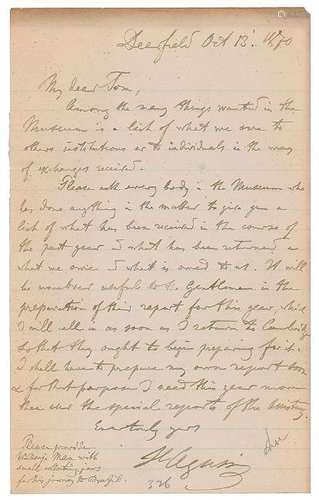 Deerfield Oct 13. 1870
My dear Tom,
Among the many things wanted in the
Museum is a list of what we owe to
other institutions or to individuals in the way
of exchanges received.
Please ask every body in the Museum who
has done anything in the matter to give you a
list of what has been received in the course of
the past year & what has been returned &
what we owe & what is owed to us. It will
be useful to the Gentlemen in the
preparation of their report for this year, which
I will call in as soon as I return to Cambridge
so that they ought to begin preparing for it.
I shall have to prepare my own report soon
& for that purpose I need this year more
than ever the special reports of the
Ever truly yrs
L Agassiz
Please provide
Maack with
small collecting jars
for his journey to
326